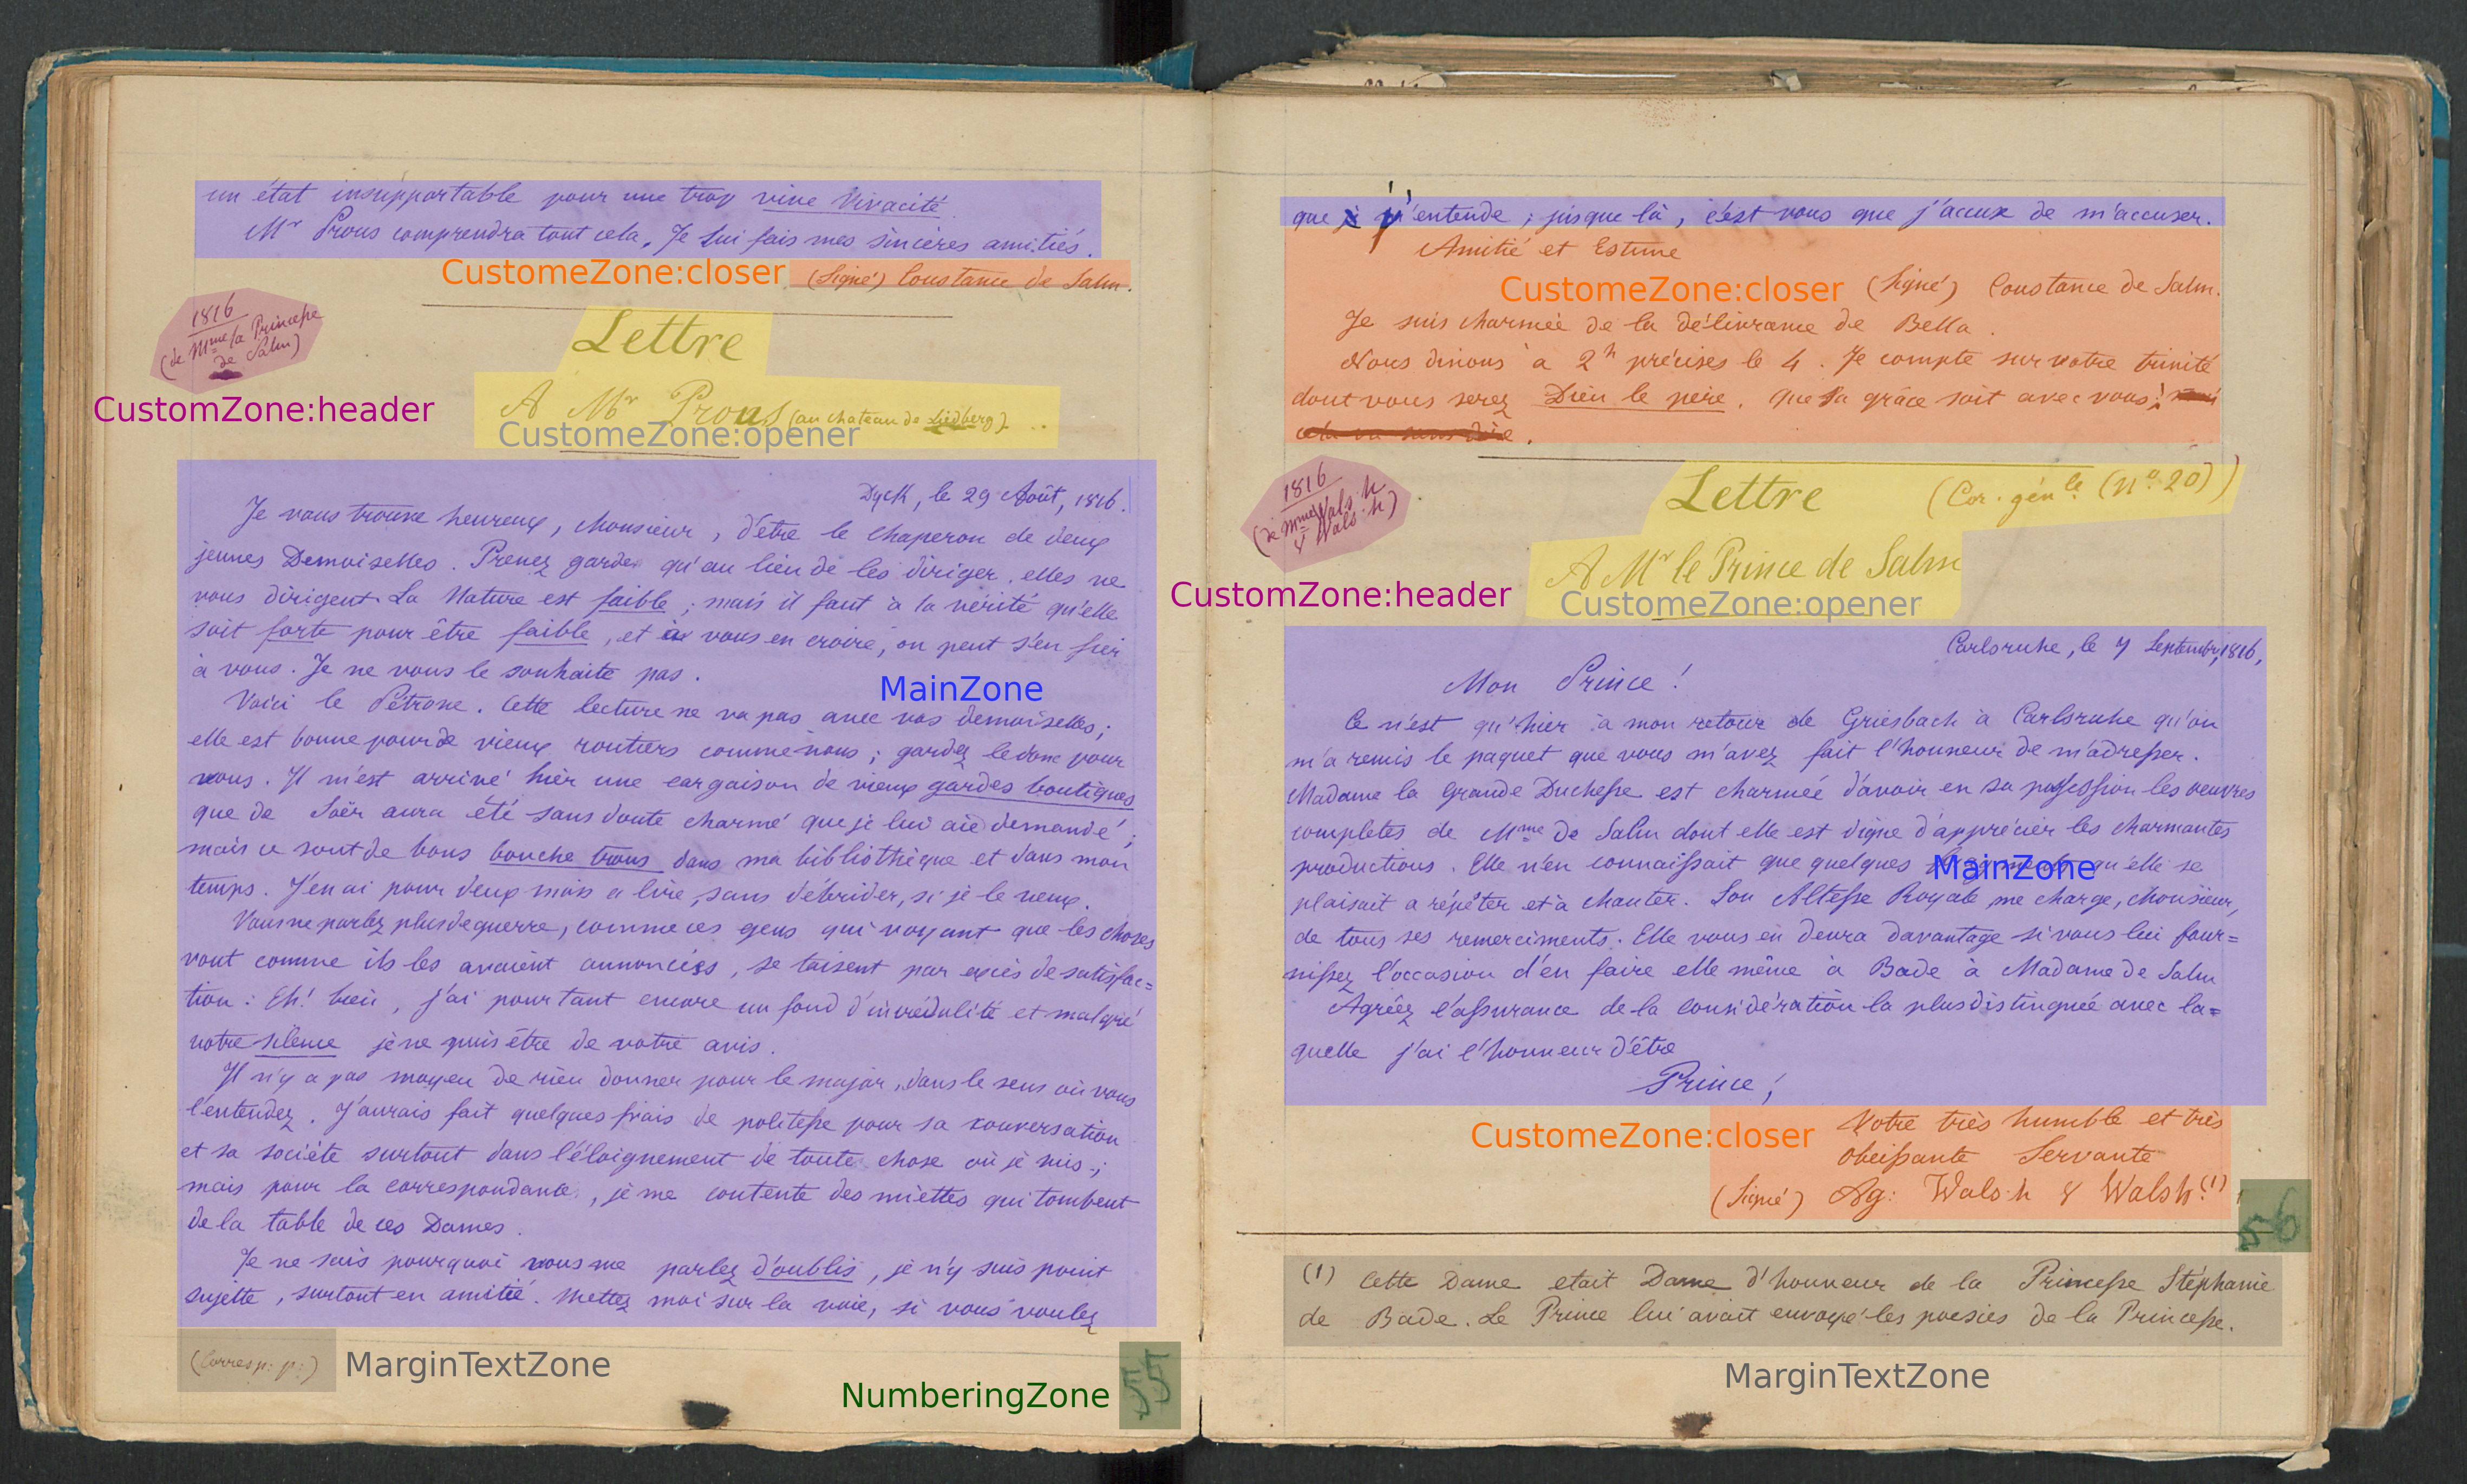 un état insupportable pour une trop vive vivacité.
Mr Prous comprendra tout cela. Je lui fais mes sincères amitiés.
CustomeZone:closer (signé) Constance de Salm.
1816
(de Mme la Princesse
de Salm)
CustomZone:header
Lettre
A Mr Prous (au chateau de Liedberg)
CustomeZone:opener
Dyck, le 29 Août, 1816.
Je vous trouve heureux, Monsieur, d'être le chaperon de deux
jeunes Demoiselles. Prenez garde qu'au lieu de les diriger, elles ne
vous dirigent. La Nature est faible; mais il faut à la vérité qu'elle
soit forte pour être faible, et à vous en croire, on peut s'en fier
à vous. Je ne vous le souhaite pas.
MainZone
Voici le Pétrone. Cette lecture ne va pas avec vos demoiselles;
elle est bonne pour de vieux routiers comme nous; gardez le donc pour
vous. Il m'est arrivé hier une cargaison de vieux gardes boutiques
que de Soër aura été sans doute charmé que je lui aie demandé;
mais ce sont de bons bouche trous dans ma bibliothèque et dans mon
temps. J'en ai pour deux mois a lire, sans débrider, si je le veux.
Vous ne parlez plus de guerre, comme ces gens qui voyant que les choses
vont comme ils les avaient annoncées, se taisent par excès de satisfac=
tion: Eh! bien, j'ai pourtant encore un fond d'incrédulité et malgré
votre silence je ne puis être de votre avis.
Il n'y a pas moyen de rien donner pour le major, dans le sens où vous
l'entendez. J'aurais fait quelques frais de politesse pour sa conversation
et sa société surtout dans l'éloignement de toute chose où je suis;
mais pour la correspondance, je me contente des miettes qui tombent
de la table de ces Dames.
Je ne sais pourquoi vous me parlez d'oublis, je n'y suis point
sujette, surtout en amitié. Mettez moi sur la voie, si vous voulez
(Corresp: p:) MarginTextZone
NumberingZone 55
que j'entende; jusque là, c'est vous que j'accuse de m'accuser.
Amitié et Estime
CustomeZone:closer (signé) Constance de Salm.
Je suis charmée de la délivrance de Bella.
Nous dinons à 2h précises le 4. Je compte sur votre trinité
dont vous serez Dieu le père. Que sa grâce soit avec vous!
cela va sans dire.
1816
(de Mme Walsh
& Walsh)
CustomZone:header
Lettre (Cor. génle (No 20))
A Mr le Prince de Salm
CustomeZone:opener
Carlsruhe, le 7 Septembre, 1816,
Mon Prince!
Ce n'est qu'hier à mon retour de Griesbach à Carlsruhe qu'on
m'a remis le paquet que vous m'avez fait l'honneur de m'adresser.
Madame la Grande Duchesse est charmée d'avoir en sa possession les oeuvres
completes de Mme de Salm dont elle est digne d'apprécier les charmantes
productions. Elle n'en connaissait que quelques qu'elle se
MainZone
plaisait a répéter et à chanter. Son Altesse Royale me charge, Monsieur,
de tous ses remerciments. Elle vous en devra davantage si vous lui four=
nissez l'occasion d'en faire elle même à Bade à Madame de Salm
Agréez l'assurance de la considération la plus distinguée avec la=
quelle j'ai l'honneur d'être
Prince!
CustomeZone:closer Votre très humble et très
obeissante Servante
(signé) Ag: Walsh & Walsh (1)
56
(1) Cette Dame etait Dame d'honneur de la Princesse Stéphanie
de Bade. Le Prince lui avait envoyé les poesies de la Princesse.
MarginTextZone